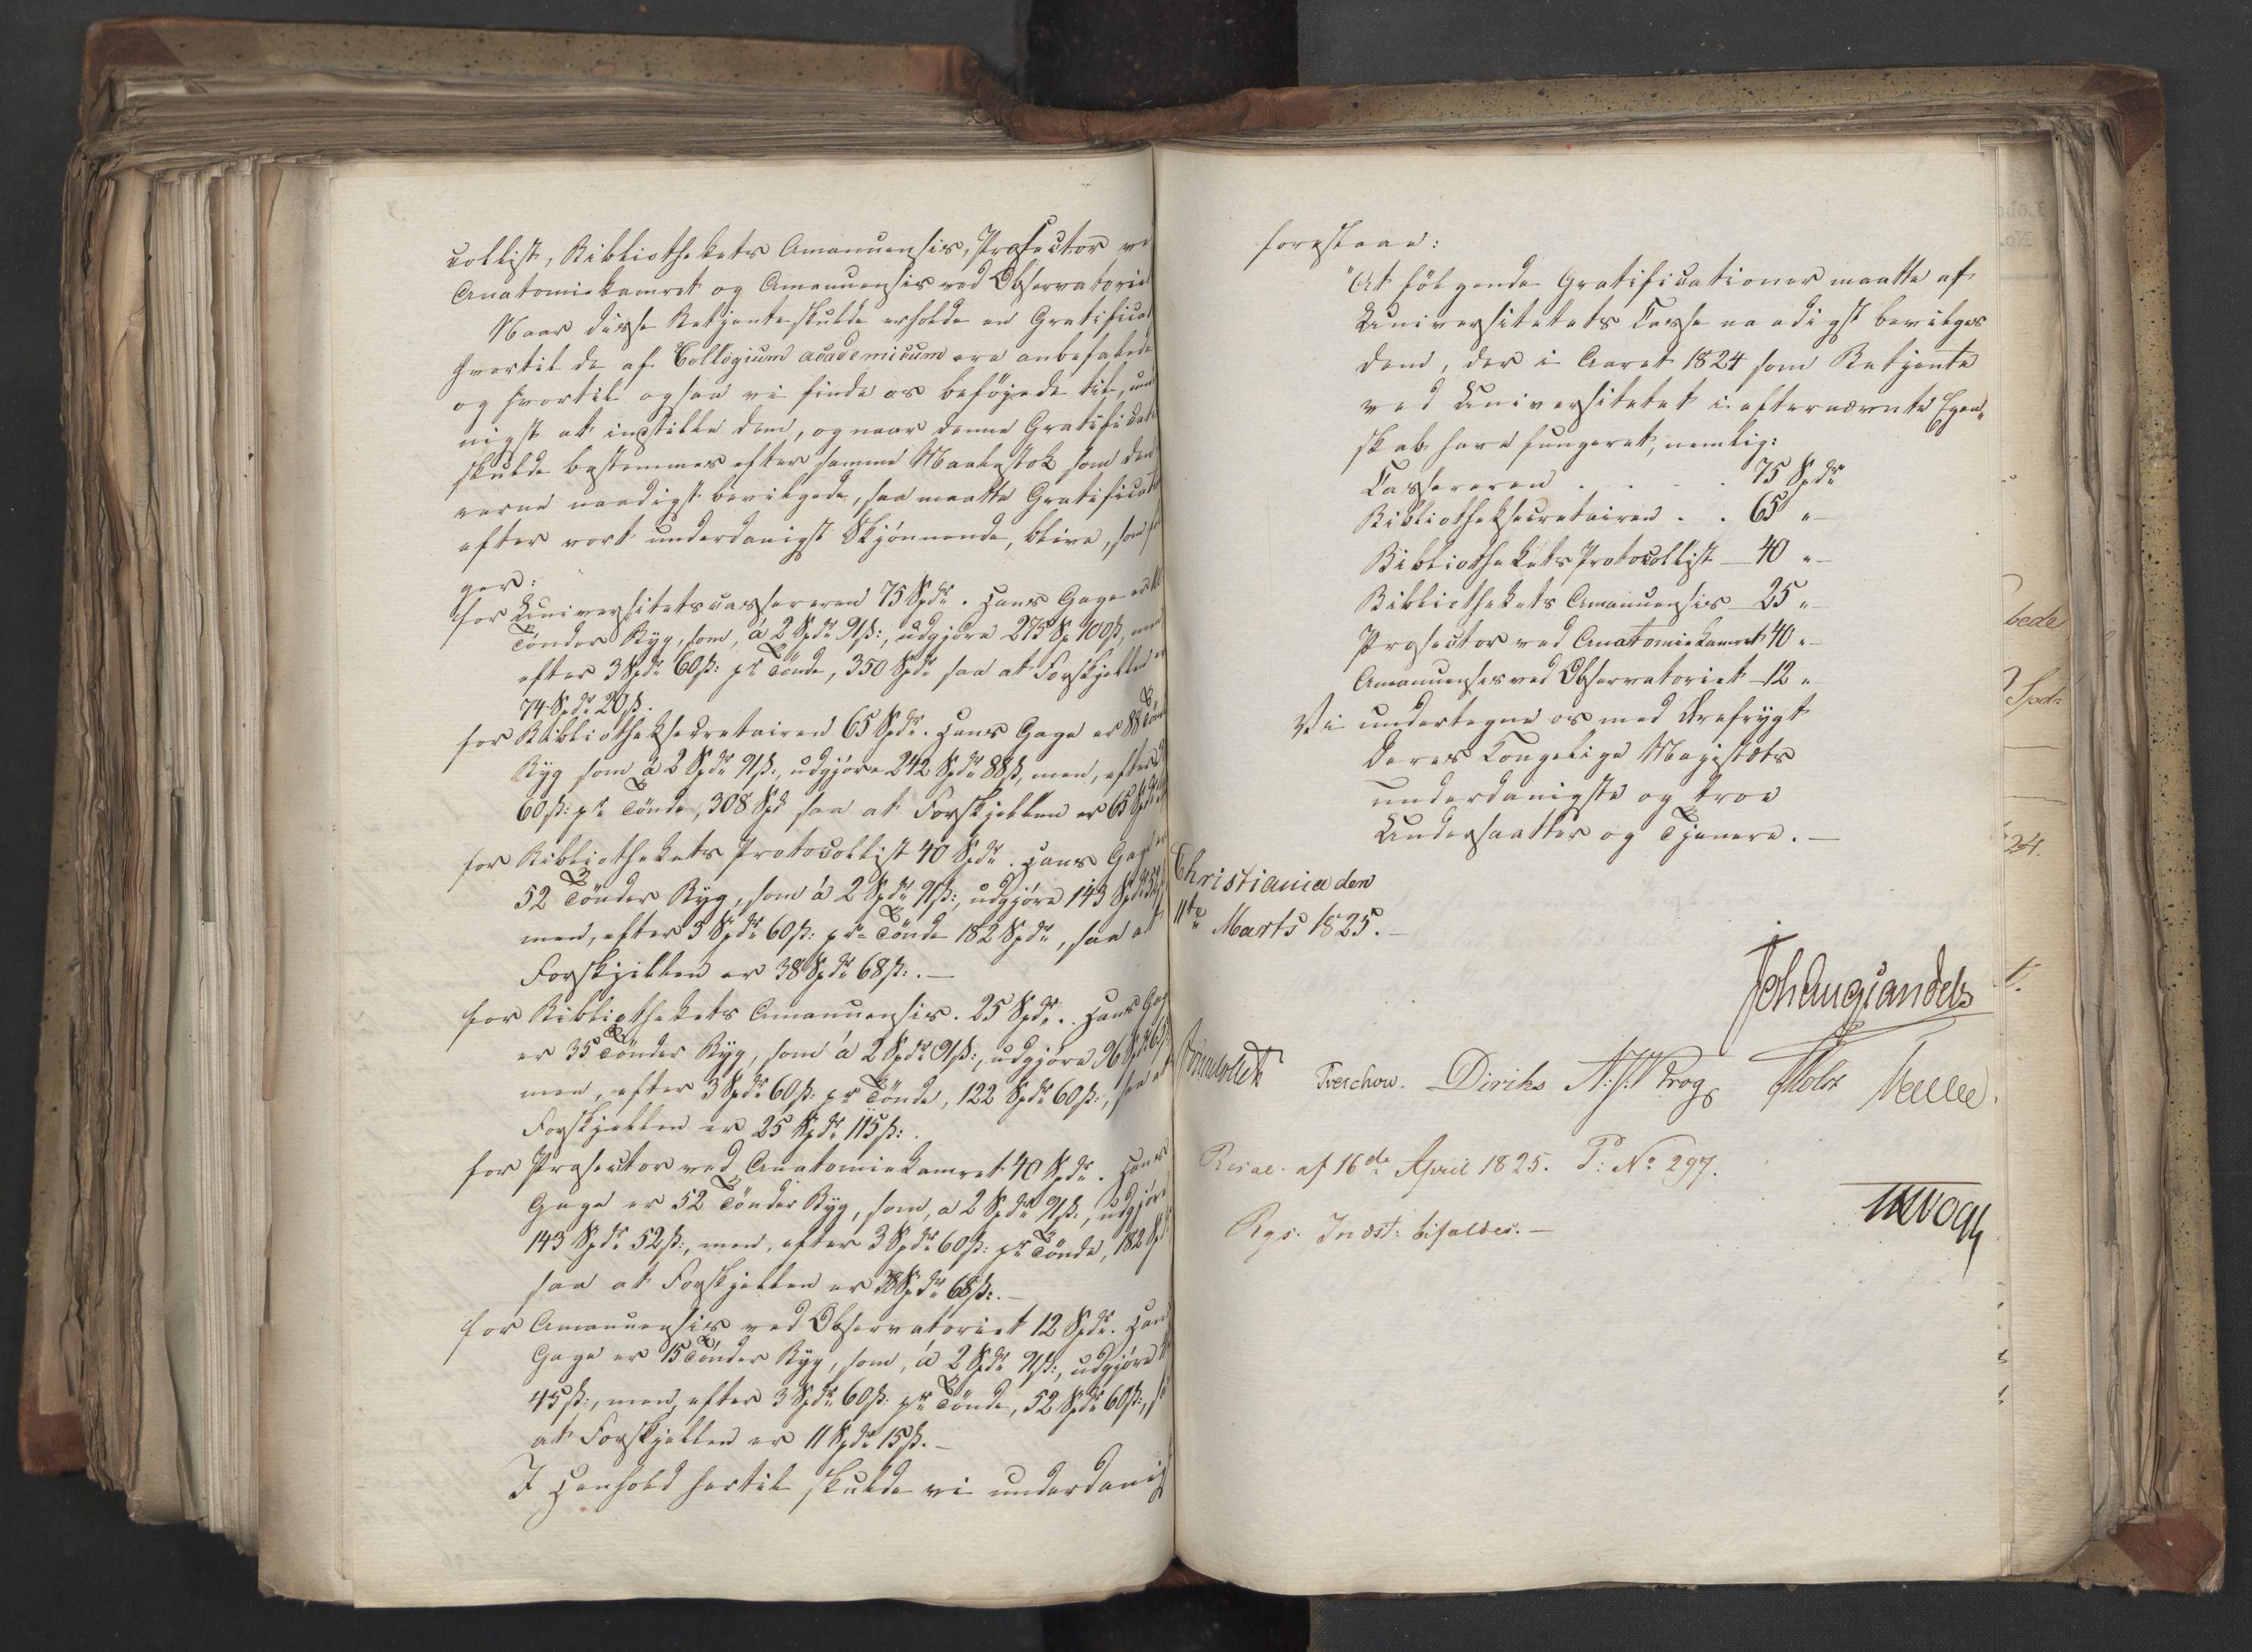 collist, Bibliothekets Amanuensis, Prosector ve
Anatomiekamret og Amanuensis ved Observatoriet
Naar disse Betjente skulde erholde en Gratificat
hvortil de af Collegium academicum ere anbefalede
og hvortil ogsaa vi finde os beföjede til, und
nigst at indstille dem, og naar denne Gratificat
skulde bestemmes efter samme Maalestok som den
rerne naadigst bevilgede, saa maatte Gratificat
efter vort underdanigst Skjönnende, blive, som föl
ger:
for Universitetscassereren 75 Spdr. Hans Gage er 100
Tönder Byg, som, á 2 Spdr 91 ß:, udgjöre 275 Sp 100 ß, men
efter 3 Spdr 60 ß: pr Tönde, 350 Spdr saa at Forskjellen er
74 Spdr 20 ß.
for Bibliotheksecretairen 65 Spdr. Hans Gage er 88 Tönd
Byg som á 2 Spdr 91 ß:, udgjöre 242 Spdr 88 ß, men, efter 3
60 ß: pr Tönde, 308 Spd saa at Forskjellen er 65 Spdr
for Bibliothekets Protocollist 40 Spdr. Hans Gage er
52 Tönder Byg, som á 2 Spdr 91 ß:, udgjöre 143 Spdr 52
men, efter 3 Spdr 60 ß: pr Tönde 182 Spdr, saa at
Forskjellen er 38 Spdr 68 ß:. —
for Bibliothekets Amanuensis. 25 Spdr. Hans Gag
er 35 Tönder Byg, som á 2 Spdr 91 ß:, udgjöre 96 Spdr 65 ß:
men, efter 3 Spdr 60 ß: pr Tönde, 122 Spdr 60 ß:, saa at
Forskjellen er 25 Spdr 115 ß:.
for Prosector ved Anatomiekamret 40 Spdr. Hans
Gage er 52 Tönder Byg, som, a 2 Spdr 91 ß:, udgjöre
143 Spdr 52 ß:, men, efter 3 Spdr 60 ß: pr Tönde, 182 Spd
saa at Forskjellen er 38 Spdr 68 ß:. —
for Amanuensis ved Observatoriet 12 Spdr. Hans
Gage er 15 Tönder Byg, som, á 2 Spdr 91 ß:, udgjöre
45 ß:, men, efter 3 Spdr 60 ß: pr Tönde, 52 Spdr 60 ß:, s
at Forskjellen er 11 Spdr 15 ß. —
I Henhold hertil skulde vi underdanigst
foreslaae:
"At fölgende Gratificationer maatte af
Universitetets Casse naadigst bevilges
dem, der i Aaret 1824 som Betjente
ved Universitetet i efternævnte Egen„
skab have fungeret, nemlig:
Cassereren . . . . 75 Spdr
Bibliotheksecretairen . . 65 „ —
Bibliothekets Protocollist — 40 „ —
Bibliothekets Amanuensis — 25 „ —
Prosector ved Anatomiekamret 40 „ —
Amanuenses ved Observatoriet — 12 „
Vi undertegne os med Ærefrygt
Deres Kongelige Majestæts
underdanigste og troe
Undersaatter og Tjenere. —
Christiania den
11te Marts 1825. —
Joh Aug Sandels
Sommerhielm Treschow. Diriks A: J: Krog Holst
Resol. af 16de April 1825. P: No 297.
Rgs. Indst: bifaldes. —
JHVogt
bede
Spd:
24.